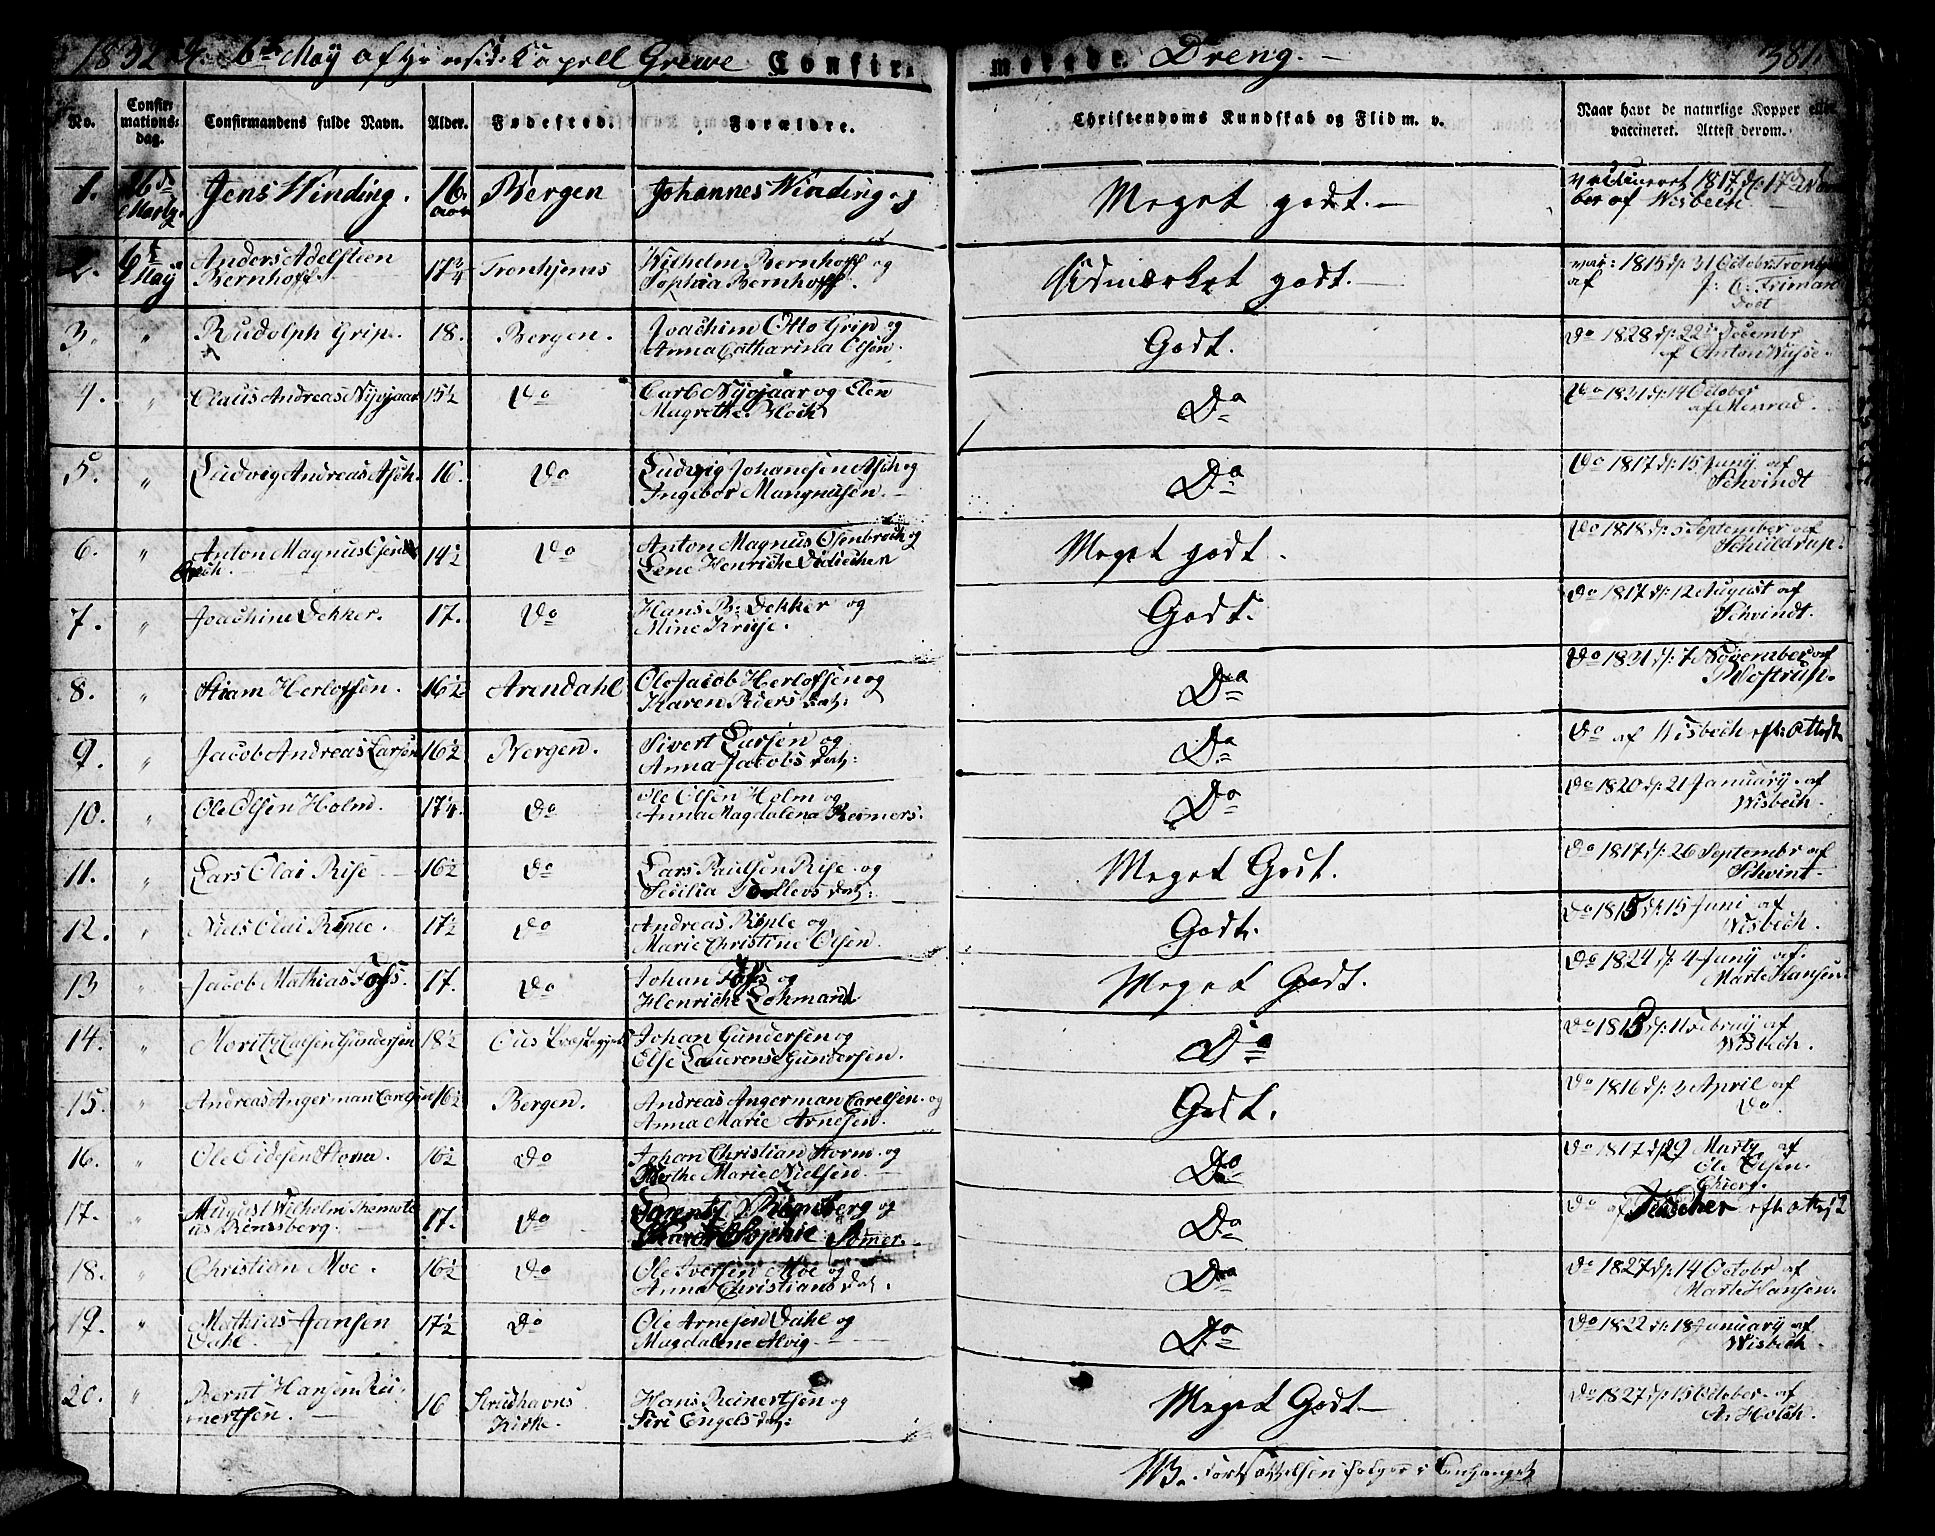 1832 d. 6te May af residt: Capell Grewe Confir- merede Dreng. 381.
No. Confirmationsdag. Confirmandens fulde Navn. Alder. Fødested. Forældre. Christendoms Kundskab og Flid m. v. Naar havt de naturlige Kopper eller vaccineret. Attest derom.
1. 26de Martz Jens Winding. 16 aar Bergen Johannes Winding og Meget godt. vaccineret 1817 d: 17de
ber af Wisbech
2. 6te May Anders Adelstien Bernhoff. 17 3/4 Tronhjems Wilhelm Bernhoff og Sophia Bernhoff. Udmærket godt. vac: 1815 d: 31 October Tronhjem
af
3. " Rudolph Grip. 18. Bergen. Joachim Otto Grip og Anna Catharina Olsen. Godt. Do 1828 d: 22de Decembr
af Anton Wiise
4. " Claus Andreas Nygaar 15 1/2 Do Carl Nygaar og Elen Magrethe Bloch Do Do 1831 d: 14 October
af Menrad.
5. " Ludvig Andreas Asch. 16. Do Ludvig Johansen Asch og Ingebor Mangnusen. Do Do 1817 d: 15 Juny af
Schvindt
6. " Anton Magnus Osenbroch. 14 1/2 Do Anton Magnus Osenbroch og Lene Henriche Didrechen Meget godt. Do 1818 d: 5 September af
Schildrup.
7. " Joachim Dekker. 17. Do Hans B: Dekker og Mine Kruse. Godt. Do 1817 d: 12 August af
Schvindt.
8. " Siram Herlofsen. 16 1/2 Arendahl Ole Jacob Herlofsen og Karen Piers dat: Do Do 1831 d: 7 November af
Mostrup.
9. " Jacob Andreas Larsen 16 1/2 Bergen. Sivert Larsen og Anna Jacobs dat: Do Do af Wisbech eft: Attest
10. " Ole Olsen Holm. 17 1/4. Do Ole Olsen Holm og Anna Magdalena Reimers. Do Do 1820 d: 21 January. af
Wisbech.
11. " Lars Olai Rise 16 1/2 Do Lars Paulsen Rise og Secilia Tollevs dat: Meget Godt. Do 1817 d: 26 Septembr af
Schvint
12. " Niels Olai Riple 17 1/2 Do Andreas Riple og Marie Christine Olsen. Godt. Do 1815 d: 15 Juni af
Wisbech.
13 " Jacob Mathias Foss. 17. Do Johan Foss og Henriche Lohmand Meget Godt. Do 1824 d: 4 Juny af.
Marte Hansen
14. " Moritz Hansen Gundersen 18 1/2 Ous Præstegjeld Johan Gundersen og Else Laurense Gundersen. Do Do 1815 d: 11 Febray af
Wisbech.
15. " Andreas Angerman Carelsen 16 1/2 Bergen. Andreas Angerman Carelsen. og Anna Marie Arnesen. Godt. Do 1816 d: 3 April af
Do.
16. " Ole Eidesen Storm. 16 1/2 Do Johan Christian Storm. og Berthe Marie Nielsen. Do Do 1817 d: 29 Martz af
Ole Olsen.
17. " August Wilhelm Themoteus Rensberg. 17. Do Lorentz Rensberg og Karen Sophie Sømer. Do Do af Feuscher eft: attest
18. " Christian Moe. 16 1/2 Do Ole Iversen Moe og Anna Christians dat. Do Do 1827 d: 14 Octobr af
Marte Hansen.
19. " Mathias Jansen Dahl. 17 1/2 Do Ole Arnesen Dahl og Magdalene Alvig Do Do 1822 d: 18 January af
Wisbech.
20. " Bernt Hansen Reinertsen. 16 Strudshavns Kirke Hans Reinertsen og Siri Engels dat: Meget Godt. Do 1827 d: 15 October. af
A. Holch.
NB. Fortsættelsen følger i Anhanget